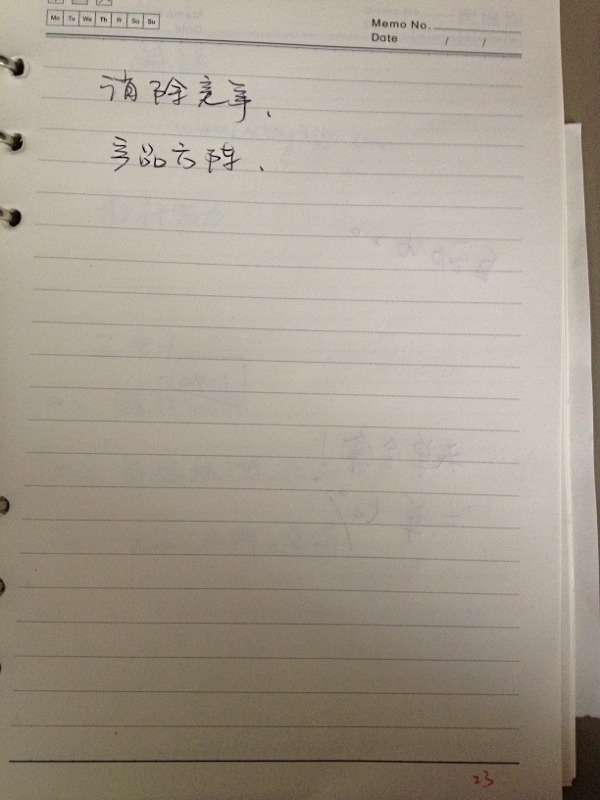 Mo Tu We Th Fr Sa Su
Memo No.
Date / /
消除竞争、
产品方阵、
23